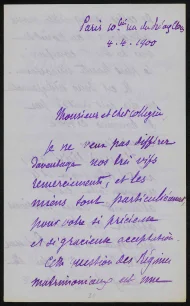 Paris 10 bis rue du Pré aux Clercs
4.4.1900
Monsieur et cher collègue
Je ne veux pas différer
davantage nos très vifs
remerciements, et les
miens tout particulièrement
pour votre si précieuse
et si gracieuse acceptation.
Cette question des Régimes
matrimoniaux est une